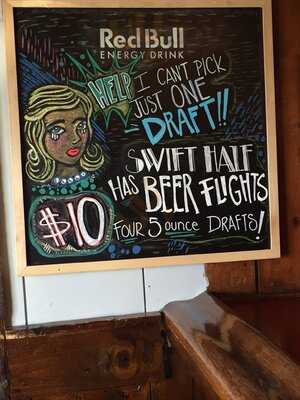 Red Bull
ENERGY DRINK
HELP I CAN'T PICK
JUST ONE
- DRAFT!!
SWIFT HALF
HAS BEER FLIGHTS
$10
FOUR 5 ounce DRAFTS!